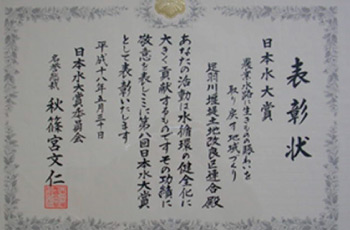 表彰状
日本水大賞
農業水路に生きもの賑わいを
取り戻す地域づくり
足羽川堰堤土地改良区連合殿
あなたの活動は水循環の健全化に
大きく貢献するものですその功績に
敬意を表しここに第八回日本水大賞
として表彰いたします
平成十八年五月三十日
日本水大賞委員会
名誉総裁 秋篠宮文仁